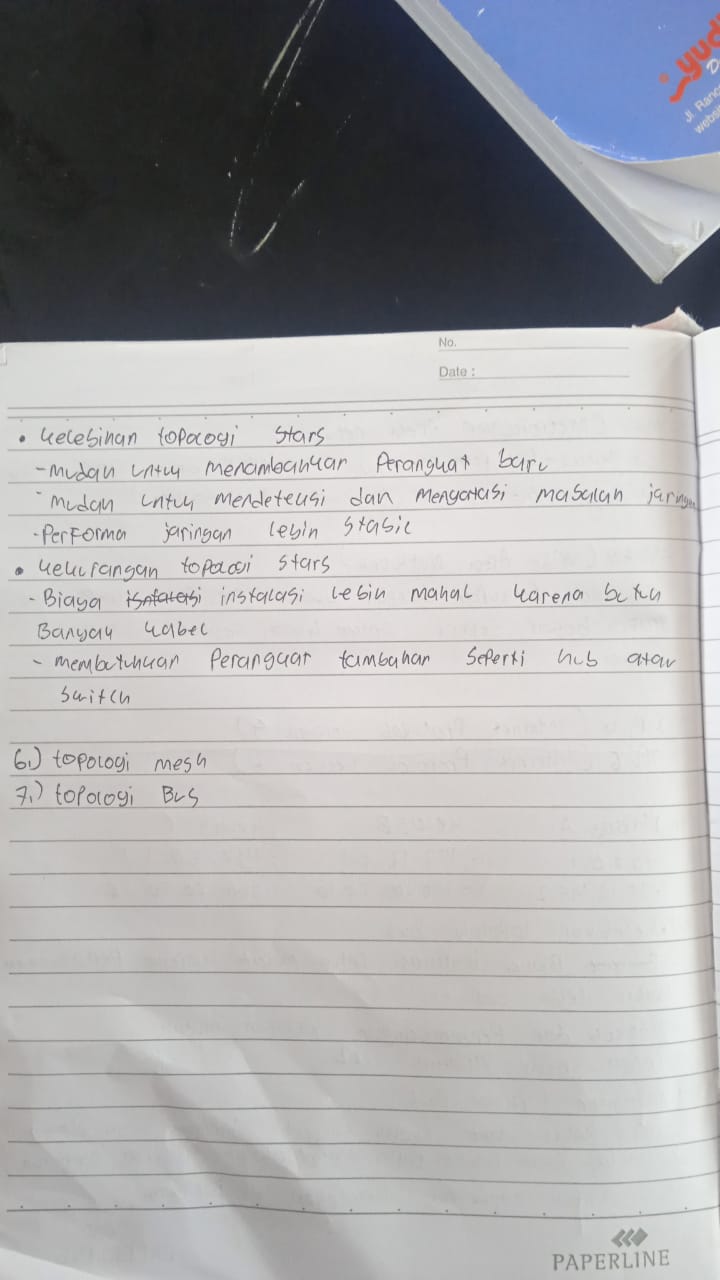 yudi
Jl. Ranc
websi
No.
Date :
• kelebihan topologi stars
- mudah untuk menambahkan Perangkat baru
- mudah untuk mendeteksi dan Mengatasi masalah jaringan
- Performa jaringan lebih stabil
• kekurangan topologi stars
- Biaya isntalasi instalasi lebih mahal karena butuh
Banyak kabel
- membutuhkan Perangkat tambahan Seperti hub atau
Switch
6.) topologi mesh
7.) topologi Bus
PAPERLINE